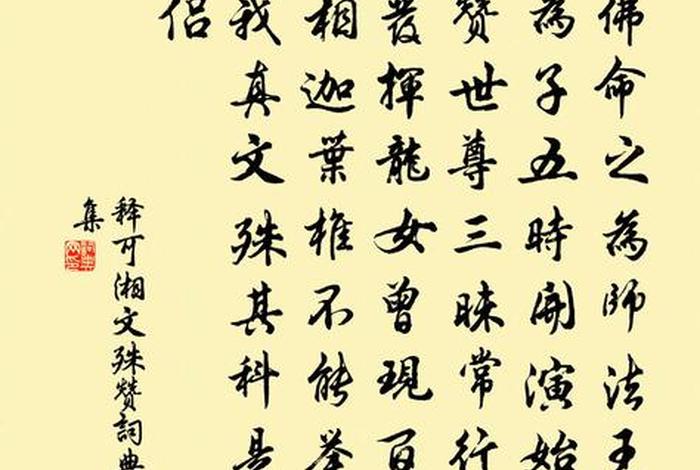 佛命之為師法王
為子五時開演始
贊世尊三昧常行
發揮龍女曾現百
相迦葉椎不能举
我真文殊其科是
侶
释可湘文殊赞詞典
集